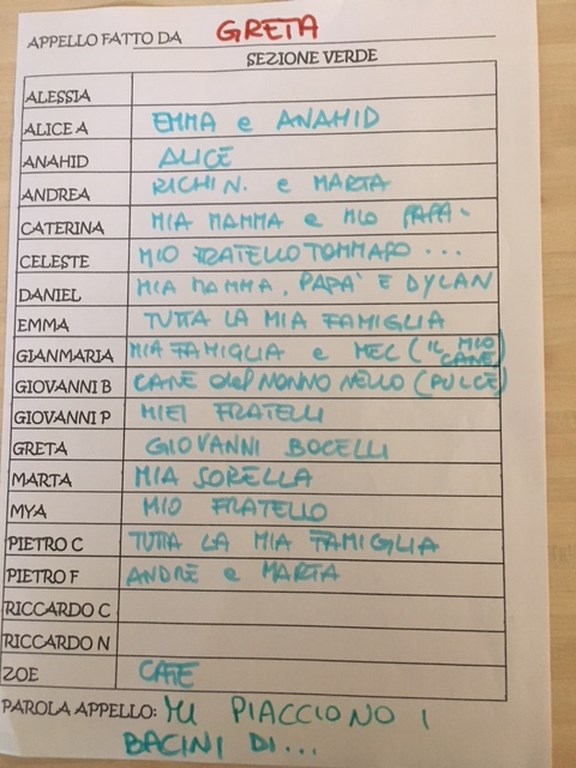 APPELLO FATTO DA GRETA
SEZIONE VERDE
ALESSIA
ALICE A EMMA e ANAHID
ANAHID ALICE
ANDREA RICHI N. e MARTA
CATERINA MIA MAMMA e MIO PAPA'
CELESTE MIO FRATELLO TOMMASO ...
DANIEL MIA MAMMA, PAPA' E DYLAN
EMMA TUTTA LA MIA FAMIGLIA
GIANMARIA MIA FAMIGLIA e MEC (IL MIO CANE)
GIOVANNI B CANE del NONNO NELLO (PULCE)
GIOVANNI P MIEI FRATELLI
GRETA GIOVANNI BOCELLI
MARTA MIA SORELLA
MYA MIO FRATELLO
PIETRO C TUTTA LA MIA FAMIGLIA
PIETRO F ANDRE e MARTA
RICCARDO C
RICCARDO N
ZOE CATE
PAROLA APPELLO: MI PIACCIONO I
BACINI DI...